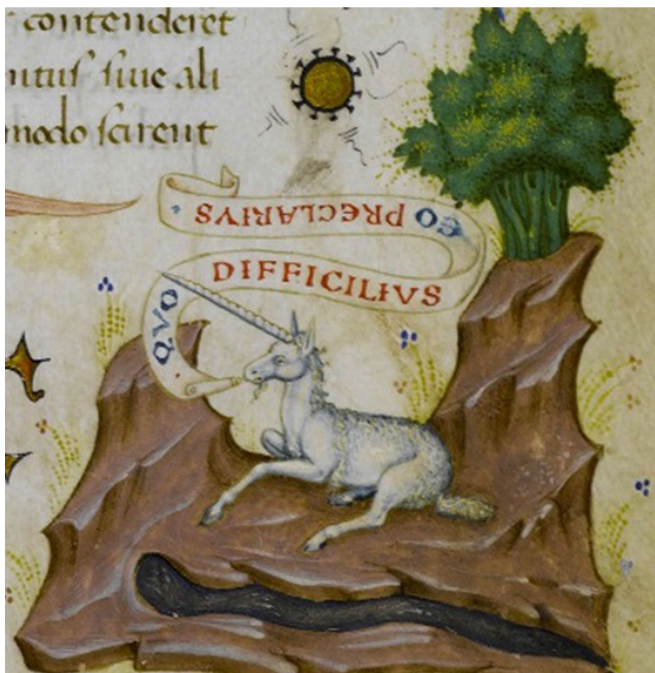 contenderet
nitus siue ali
modo scirent
QVO DIFFICILIVS
EO PRECLARIVS